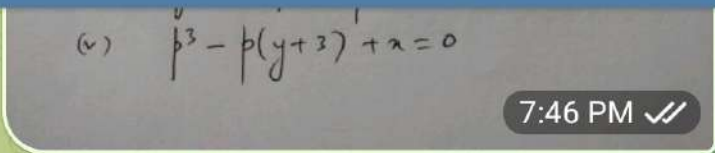 (v) p³ - p(y+3) + x = 0
7:46 PM